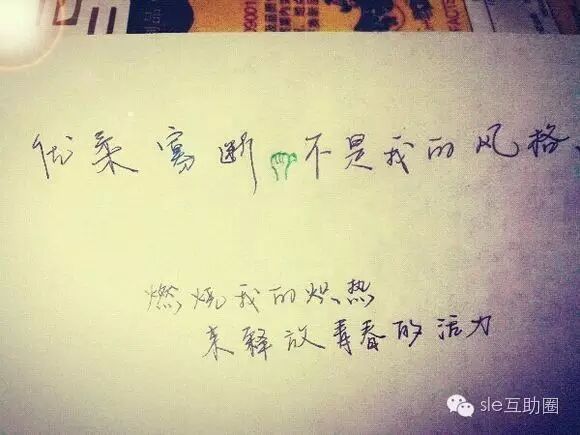 优柔寡断 不是我的风格、
燃烧我的炽热
来释放青春的活力
sle互助圈